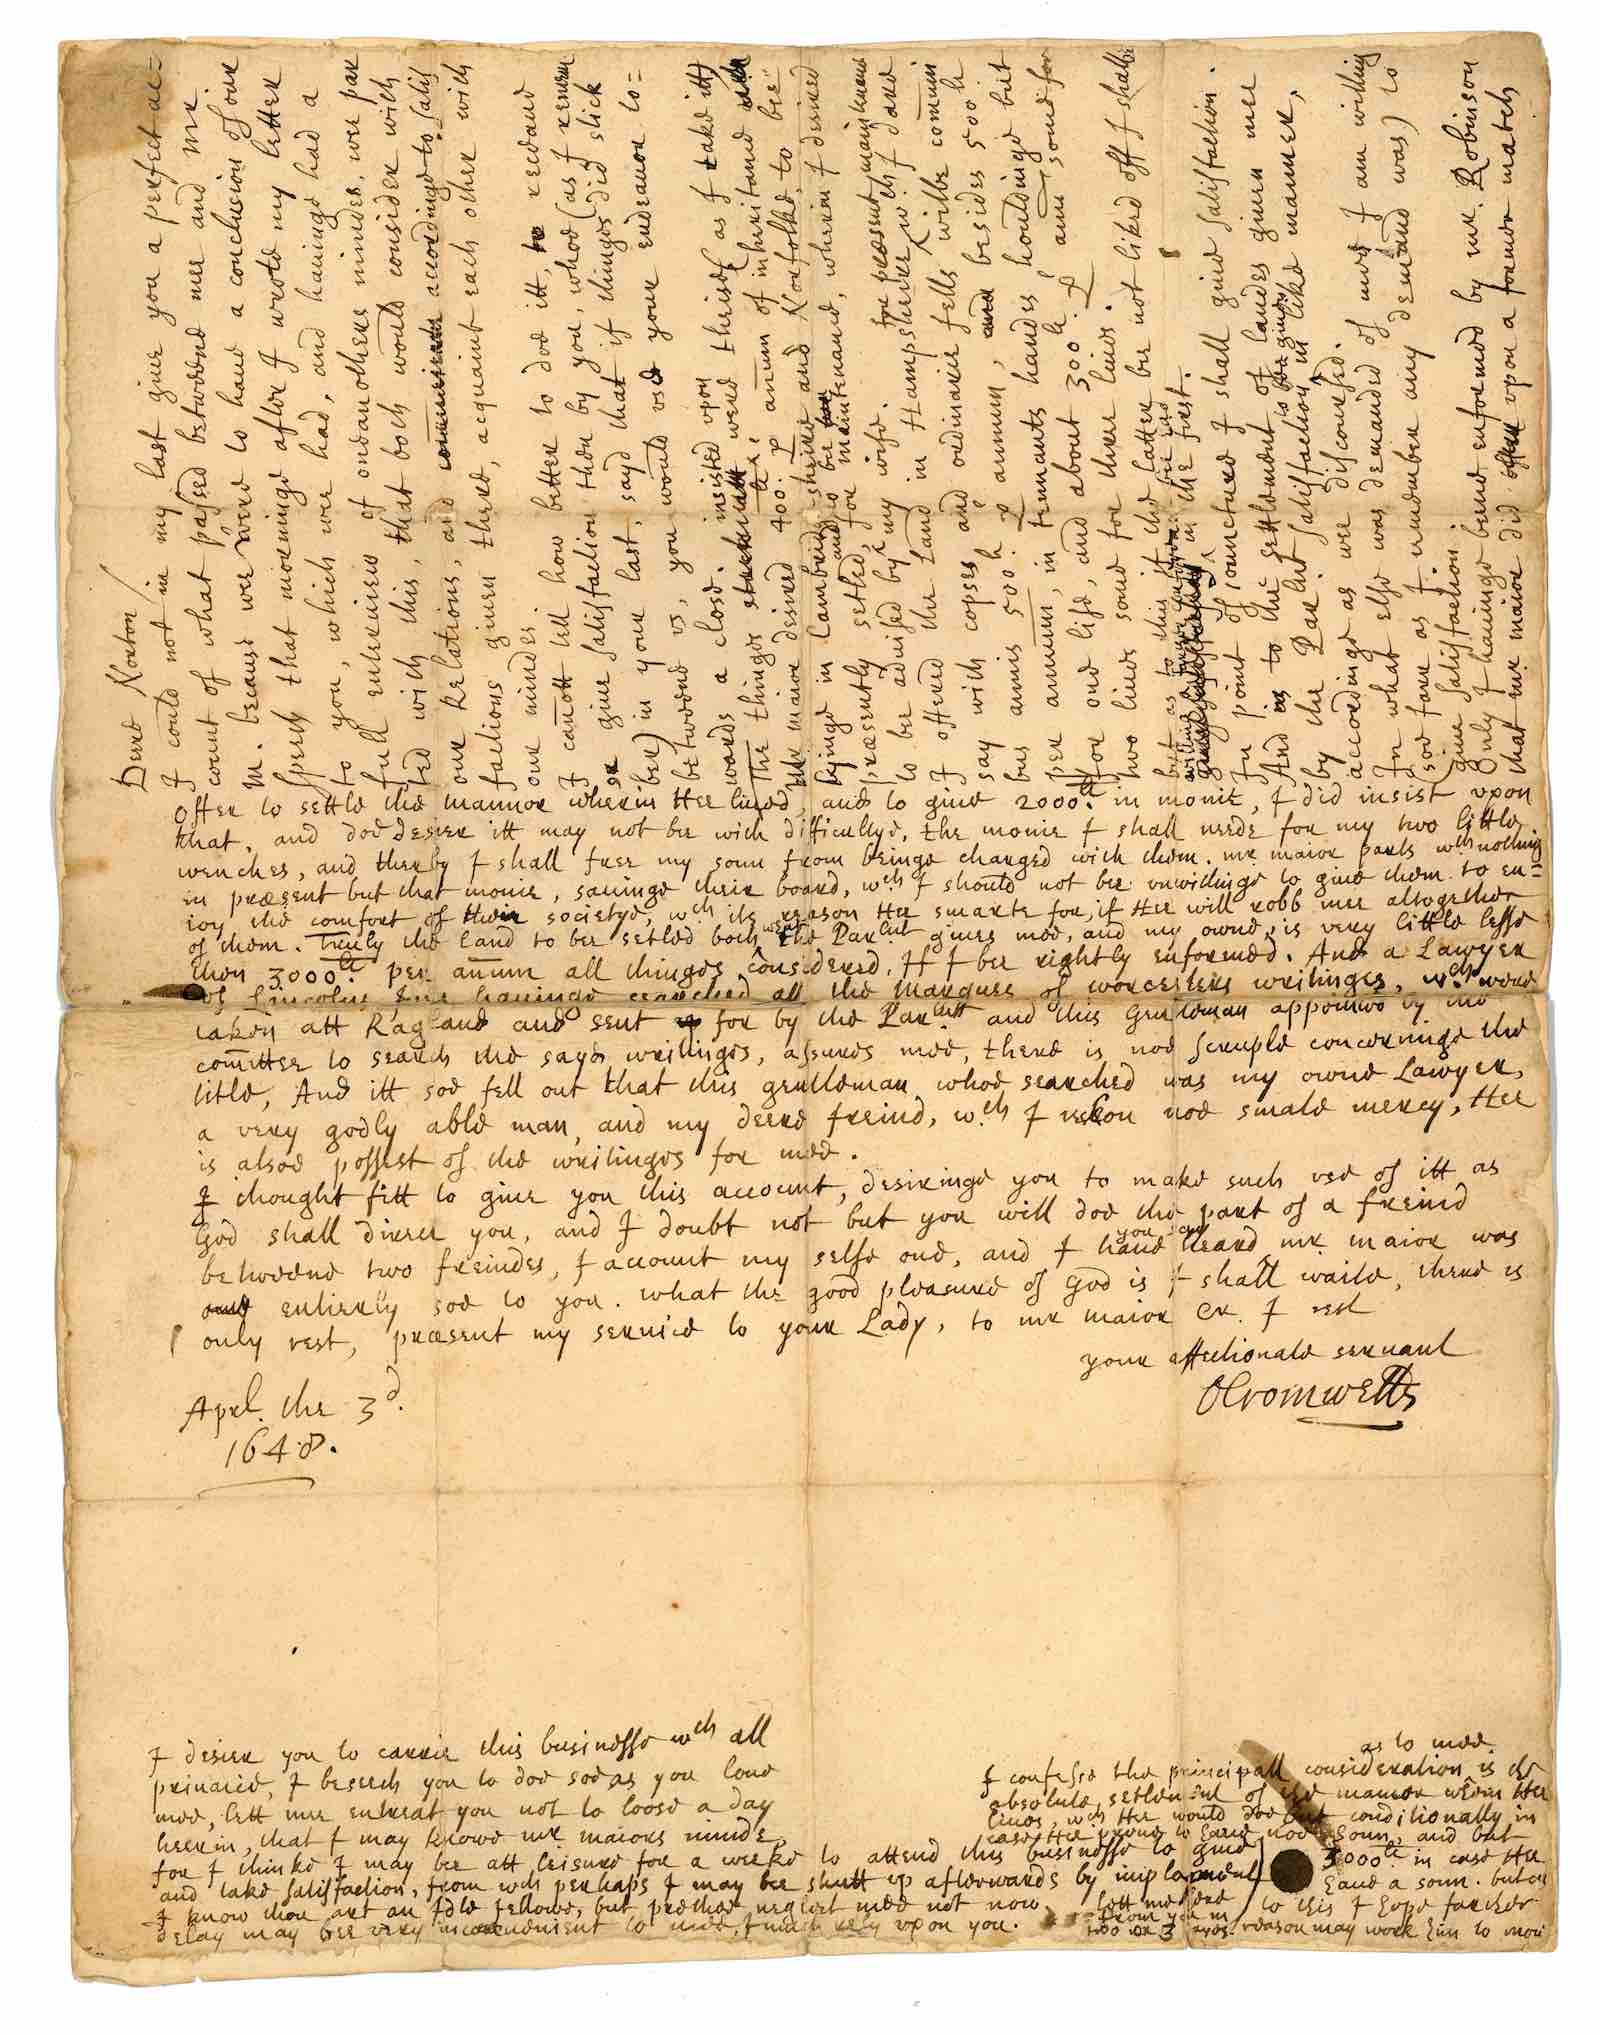 Deere Norton/
I could not in my last give you a perfect ac=
count of what passed betweene mee and Mr
M. because wee were to have a conclusion of our
speech that morninge after I wrote my letter
to you, which wee had, and havinge had a
full enteruiew of oneanothers mindes, wee par
ted with this, that both would consider with
our Relations, and accordinge to satis
factions given there, acquaint each other with
our mindes.
I cannott tell how better to doe itt, to receave
or give satisfaction then by you, whoe (as I remem
ber) in your last, sayd that if thinges did stick
betweene us, you would use your endeavor to=
wards a close.
The thinges insisted upon were theise (as I take itt)
Mr maior desired 400.li p annum of inheritance
lyinge in Cambridgshire and Norfolke, to bee
presently setled, and to be for maintenance, wherin I desired
to bee advised by my wife.
I offered the Land in Hampsheire for present maintenance wch I dare
say with copses and ordinarie fells wilbe commun
bus annis 500li p annum, and besides 500li
per annum, in tennants handes houldinge but
for one life, and about 300li p ann, some for
two lives some for three lives.
but as to this if the latter bee not liked off I shalbe
willinge farther conference bee had in the first.
In point of Joincture I shall give satisfaction.
And as to the settlement of landes given mee
by the Parlnt satisfaction to be given in like manner,
accordinge as wee discoursed.
In what else was demanded of mee I am willing
(soe farr as I remember any demand was) to
give satisfaction.
Only I havinge beene enformed by mr. Robinson
that mr maior did upon a former match
offer to settle the mannor wherin Hee lived, and to give 2000li. in monie, I did insist upon
that, and doe desier itt may not bee with difficultye, the monie I shall neede for my two little
wenches, and therby I shall free my sonn from beinge charged with them. mr. maior parts wth nothing
in præsent but that monie, savinge their board, wch I should not bee unwillinge to give them to en=
ioy the comfort of their societye, wch its reason Hee smarte for, if Hee will robb mee altogether
of them. Truly the land to bee setled both wt the Parlnt gives mee, and my owne, is very little lesse
then 3000li. per anum all thinges considered, If I bee rightly enformed. And a Lawyer
of Lincolns Inn havinge searched all the Marques of worcesters writinges, wch were
taken att Ragland and sent for by the Parlntt and this Gentleman appointed by the
comittee to search the sayd writinges, assures mee, there is noe scruple concerninge the
title, And itt soe fell out that this gentleman whoe searched was my owne Lawyer,
a very godly able man, and my deere freind, wch I reckon noe smale mercy, Hee
is alsoe possest of the writinges for mee.
I thought fitt to give you this account, desiringe you to make such use of itt as
God shall direct you, and I doubt not but you will doe the part of a freind
betweene two freindes, I account my selfe one, and I have heard you say mr maior was
entirely soe to you. What the good pleasure of God is I shall waite, there is
only rest, præsent my service to your Lady, to mr maior &c. I rest
your affectionate servant
OCromwell
Aprl. the 3d.
1648.
I desier you to carrie this businesse wth all
privacie, I beseech you to doe soe as you love
mee, lett mee entreat you not to loose a day
heerin, that I may knowe mr. maiors minde,
for I thinke I may bee att leisure for a weeke to attend this businesse to give
and take satisfaction, from wch perhaps I may bee shutt up afterwards by imployment.
I know thou art an Idle fellowe, but prethee neglect mee not now,
delay may bee very inconvenient to mee, I much rely upon you.
Lett me heere
from you in
two or 3 dayes.
I confesse the principall consideration as to mee, is the
absolute settlement of the mannor wherin Hee
lives, wch Hee would doe but conditionally in
case Hee prove to have noe sonn, and but
3000li. in case Hee
have a sonn. but as
to this I hope farther
reason may work him to more